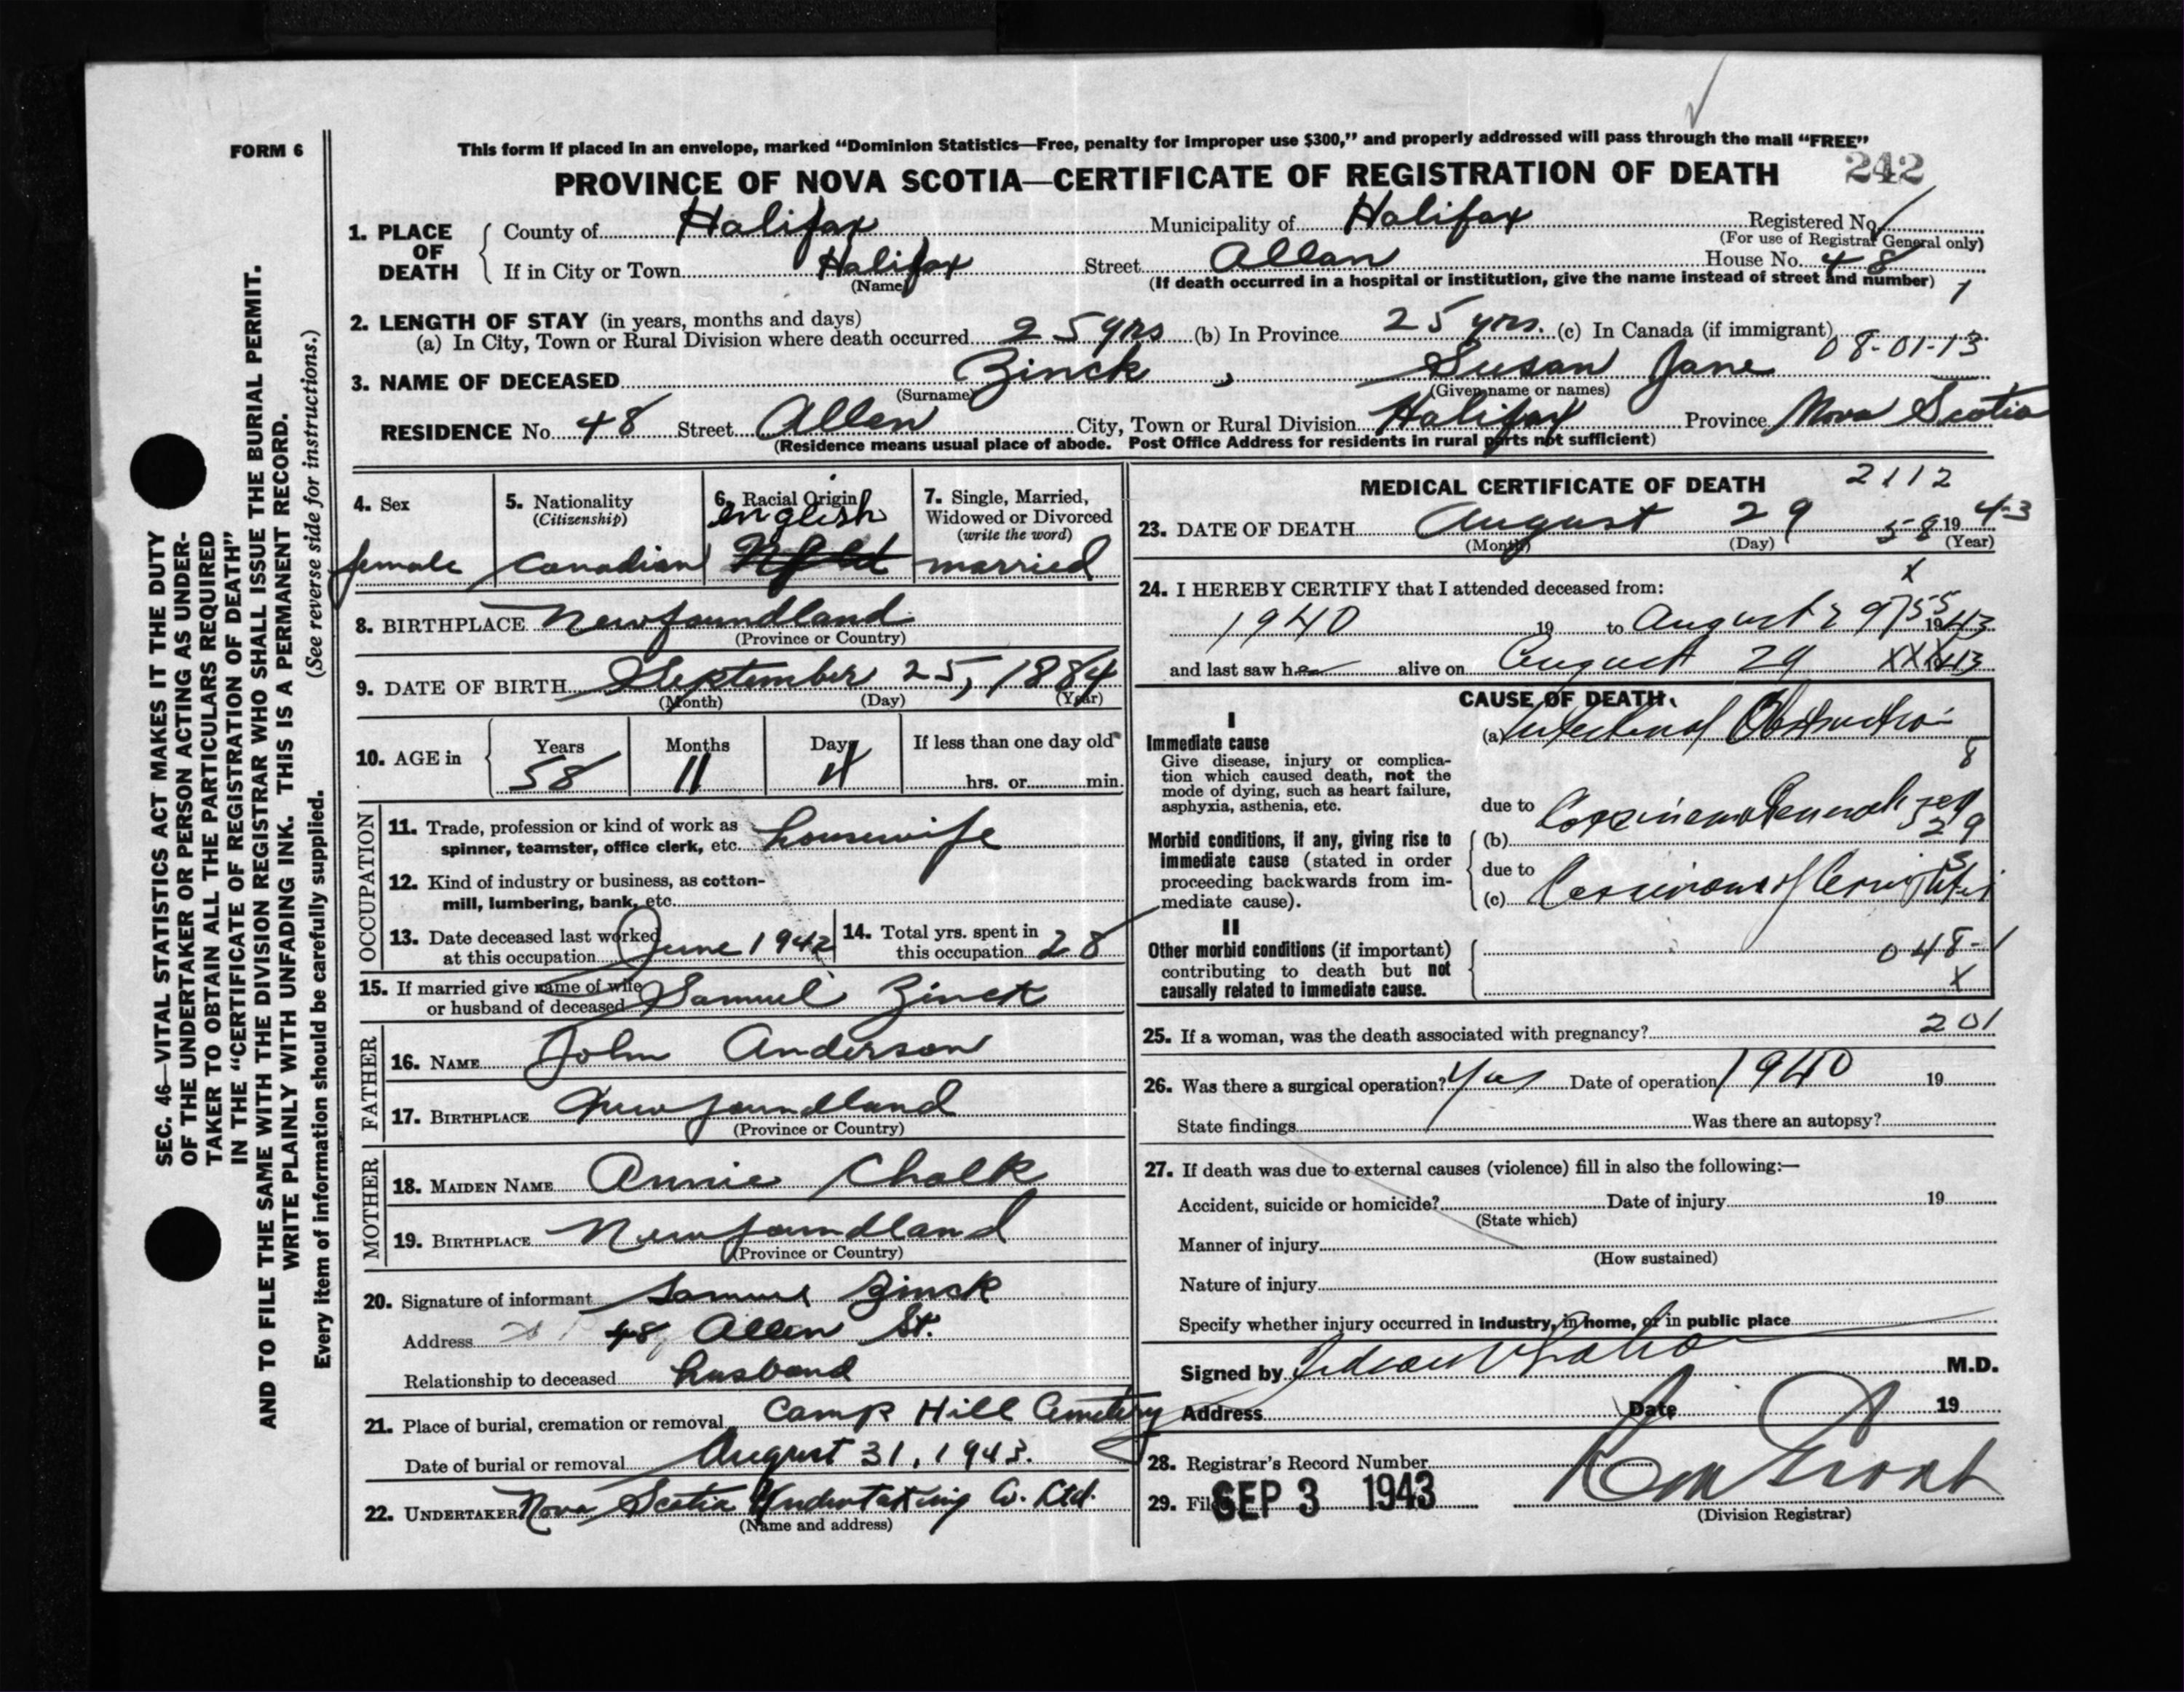 FORM 6
This form if placed in an envelope, marked “Dominion Statistics—Free, penalty for improper use $300,” and properly addressed will pass through the mail “FREE”
PROVINCE OF NOVA SCOTIA—CERTIFICATE OF REGISTRATION OF DEATH 242
1. PLACE OF DEATH
County of Halifax Municipality of Halifax Registered No.
(For use of Registrar General only)
If in City or Town Halifax Street Allan House No. 48
(Name) (If death occurred in a hospital or institution, give the name instead of street and number) 1
2. LENGTH OF STAY (in years, months and days)
(a) In City, Town or Rural Division where death occurred 25 yrs (b) In Province 25 yrs. (c) In Canada (if immigrant)
08-01-13
3. NAME OF DECEASED Zinck , Susan Jane
(Surname) (Given name or names)
RESIDENCE No. 48 Street Allen City, Town or Rural Division Halifax Province Nova Scotia
(Residence means usual place of abode. Post Office Address for residents in rural parts not sufficient)
4. Sex
female
5. Nationality
(Citizenship)
Canadian
6. Racial Origin
english
Nfld
7. Single, Married,
Widowed or Divorced
(write the word)
married
8. BIRTHPLACE Newfoundland
(Province or Country)
9. DATE OF BIRTH September 25, 1884
(Month) (Day) (Year)
10. AGE in
Years Months Days If less than one day old
58 11 4 hrs. or min.
OCCUPATION
11. Trade, profession or kind of work as
spinner, teamster, office clerk, etc. housewife
12. Kind of industry or business, as cotton-
mill, lumbering, bank, etc.
13. Date deceased last worked
at this occupation June 1942
14. Total yrs. spent in
this occupation 28
15. If married give name of wife
or husband of deceased Samuel Zinck
FATHER
16. NAME John Anderson
17. BIRTHPLACE Newfoundland
(Province or Country)
MOTHER
18. MAIDEN NAME Annie Chalk
19. BIRTHPLACE Newfoundland
(Province or Country)
20. Signature of informant Samuel Zinck
Address 48 Allen St.
Relationship to deceased husband
21. Place of burial, cremation or removal Camp Hill Cemetery
Date of burial or removal August 31, 1943.
22. UNDERTAKER Nova Scotia Undertaking Co. Ltd.
(Name and address)
MEDICAL CERTIFICATE OF DEATH 2112
23. DATE OF DEATH August 29 58 1943
(Month) (Day) (Year)
24. I HEREBY CERTIFY that I attended deceased from:
X
1940 19 to August 29 55 1943
and last saw her alive on August 29 XXX 43
CAUSE OF DEATH
I
Immediate cause
Give disease, injury or complica-
tion which caused death, not the
mode of dying, such as heart failure,
asphyxia, asthenia, etc.
(a) Intestinal Obstruction
8
due to
Morbid conditions, if any, giving rise to
immediate cause (stated in order
proceeding backwards from im-
mediate cause).
(b) Carcinoma Generalized
529
due to
(c) Carcinoma of Cervix Uteri
II
Other morbid conditions (if important)
contributing to death but not
causally related to immediate cause.
048-1
X
25. If a woman, was the death associated with pregnancy? 201
26. Was there a surgical operation? Yes Date of operation 1940 19
State findings Was there an autopsy?
27. If death was due to external causes (violence) fill in also the following:—
Accident, suicide or homicide? Date of injury 19
(State which)
Manner of injury
(How sustained)
Nature of injury
Specify whether injury occurred in industry, in home, or in public place
Signed by M.D.
Address Date 19
28. Registrar's Record Number
29. Filed SEP 3 1943
(Division Registrar)
SEC. 46—VITAL STATISTICS ACT MAKES IT THE DUTY
OF THE UNDERTAKER OR PERSON ACTING AS UNDER-
TAKER TO OBTAIN ALL THE PARTICULARS REQUIRED
IN THE “CERTIFICATE OF REGISTRATION OF DEATH”
AND TO FILE THE SAME WITH THE DIVISION REGISTRAR WHO SHALL ISSUE THE BURIAL PERMIT.
WRITE PLAINLY WITH UNFADING INK. THIS IS A PERMANENT RECORD.
Every item of information should be carefully supplied. (See reverse side for instructions.)